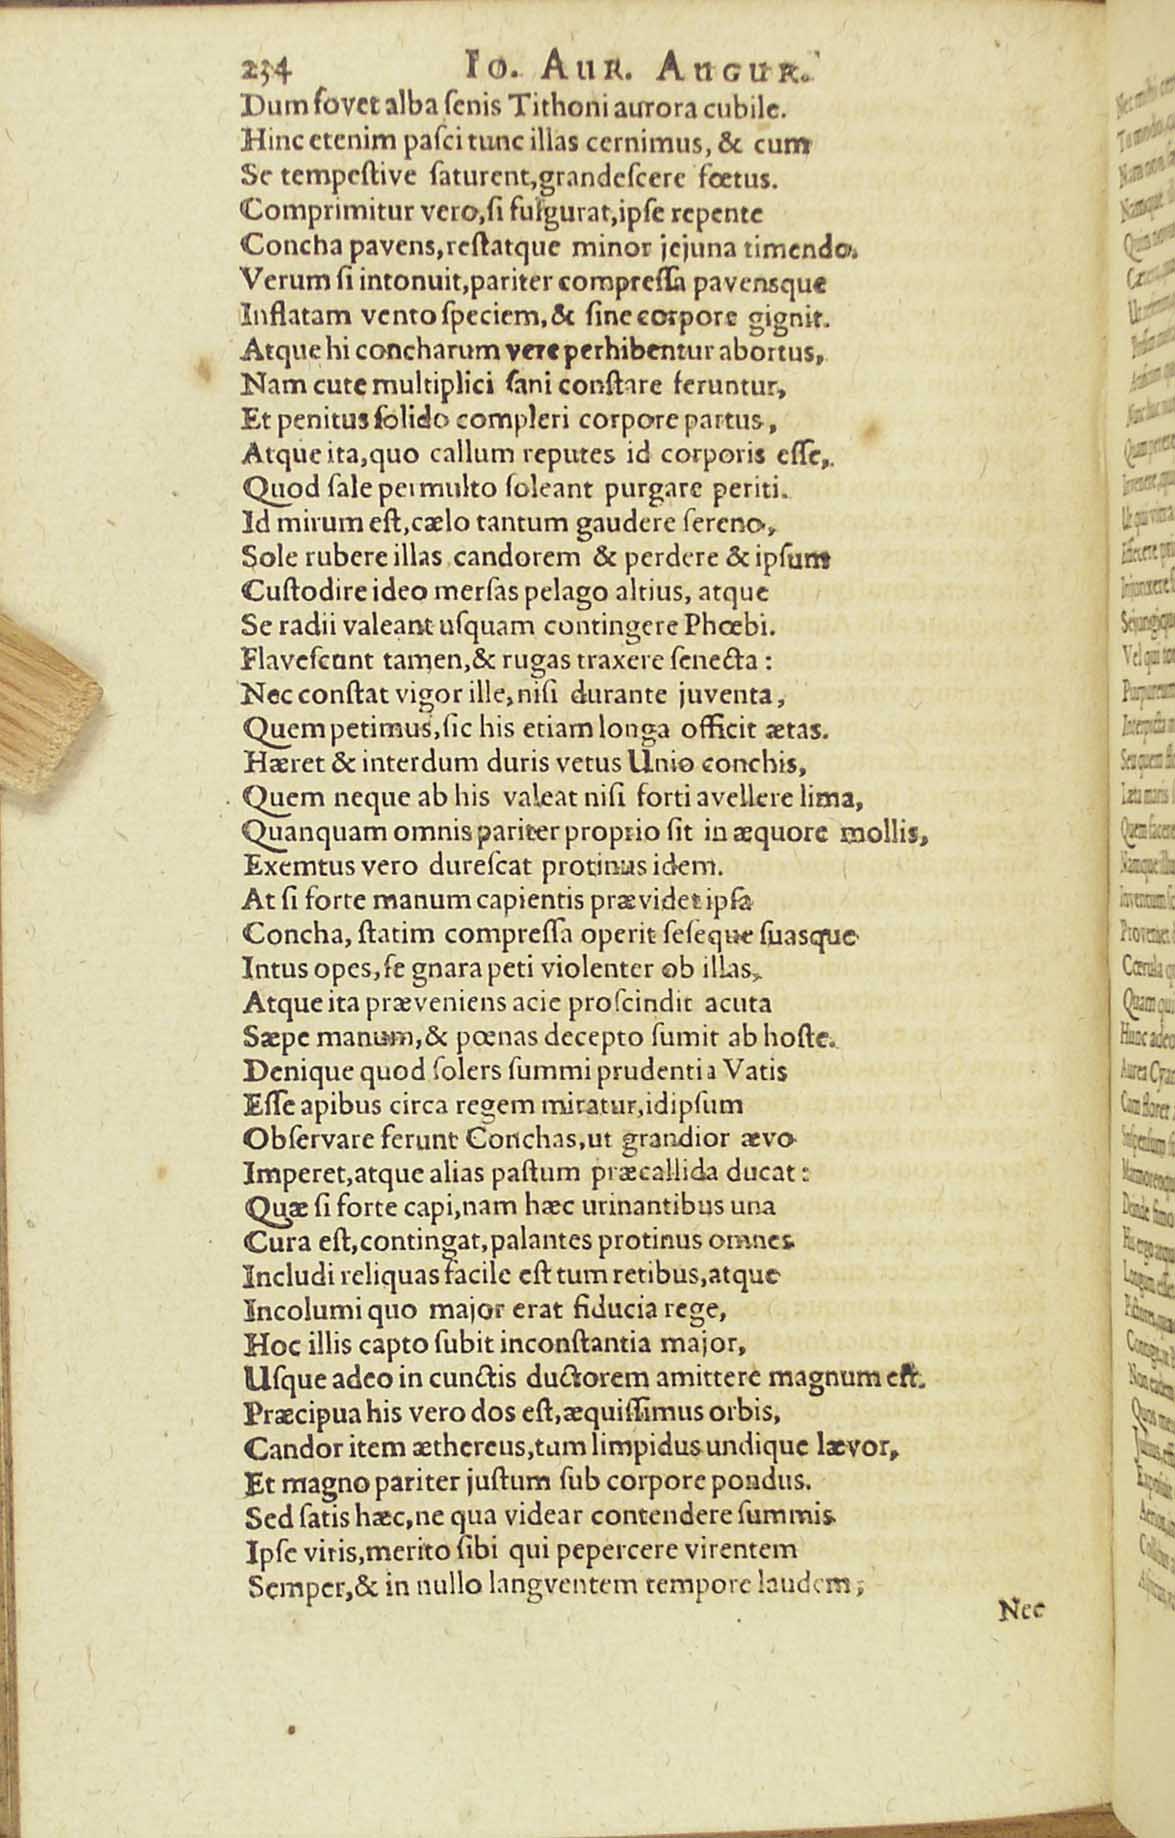 234 Io. Aur. Augur.
Dum fovet alba ſenis Tithoni aurora cubile.
Hinc etenim paſci tunc illas cernimus, & cum
Se tempeſtive ſaturent, grandeſcere fœtus.
Comprimitur vero, ſi fulgurat, ipſe repente
Concha pavens, reſtatque minor jejuna timendo.
Verum ſi intonuit, pariter compreſſa pavensque
Inflatam vento ſpeciem, & ſine corpore gignit.
Atque hi concharum vere perhibentur abortus,
Nam cute multiplici ſani conſtare feruntur,
Et penitus ſolido compleri corpore partus,
Atque ita, quo callum reputes id corporis eſſe,
Quod ſale permulto ſoleant purgare periti.
Id mirum eſt, cælo tantum gaudere ſereno,
Sole rubere illas candorem & perdere & ipſum
Cuſtodire ideo merſas pelago altius, atque
Se radii valeant uſquam contingere Phœbi.
Flaveſcunt tamen, & rugas traxere ſenecta:
Nec conſtat vigor ille, niſi durante juventa,
Quem petimus, ſic his etiam longa officit ætas.
Hæret & interdum duris vetus Unio conchis,
Quem neque ab his valeat niſi forti avellere lima,
Quanquam omnis pariter proprio ſit in æquore mollis,
Exemtus vero dureſcat protinus idem.
At ſi forte manum capientis prævidet ipſa
Concha, ſtatim compreſſa operit ſeſeque ſuasque
Intus opes, ſe gnara peti violenter ob illas,
Atque ita præveniens acie proſcindit acuta
Sæpe manum, & pœnas decepto ſumit ab hoſte.
Denique quod ſolers ſummi prudentia Vatis
Eſſe apibus circa regem miratur, idipſum
Obſervare ferunt Conchas, ut grandior ævo
Imperet, atque alias paſtum præcallida ducat:
Quæ ſi forte capi, nam hæc urinantibus una
Cura eſt, contingat, palantes protinus omnes
Includi reliquas facile eſt tum retibus, atque
Incolumi quo major erat fiducia rege,
Hoc illis capto ſubit inconſtantia major,
Uſque adeo in cunctis ductorem amittere magnum eſt.
Præcipua his vero dos eſt, æquiſſimus orbis,
Candor item æthereus, tum limpidus undique lævor,
Et magno pariter juſtum ſub corpore pondus.
Sed ſatis hæc, ne qua videar contendere ſummis
Ipſe viris, merito ſibi qui pepercere virentem
Semper, & in nullo langventem tempore laudem,
Nec